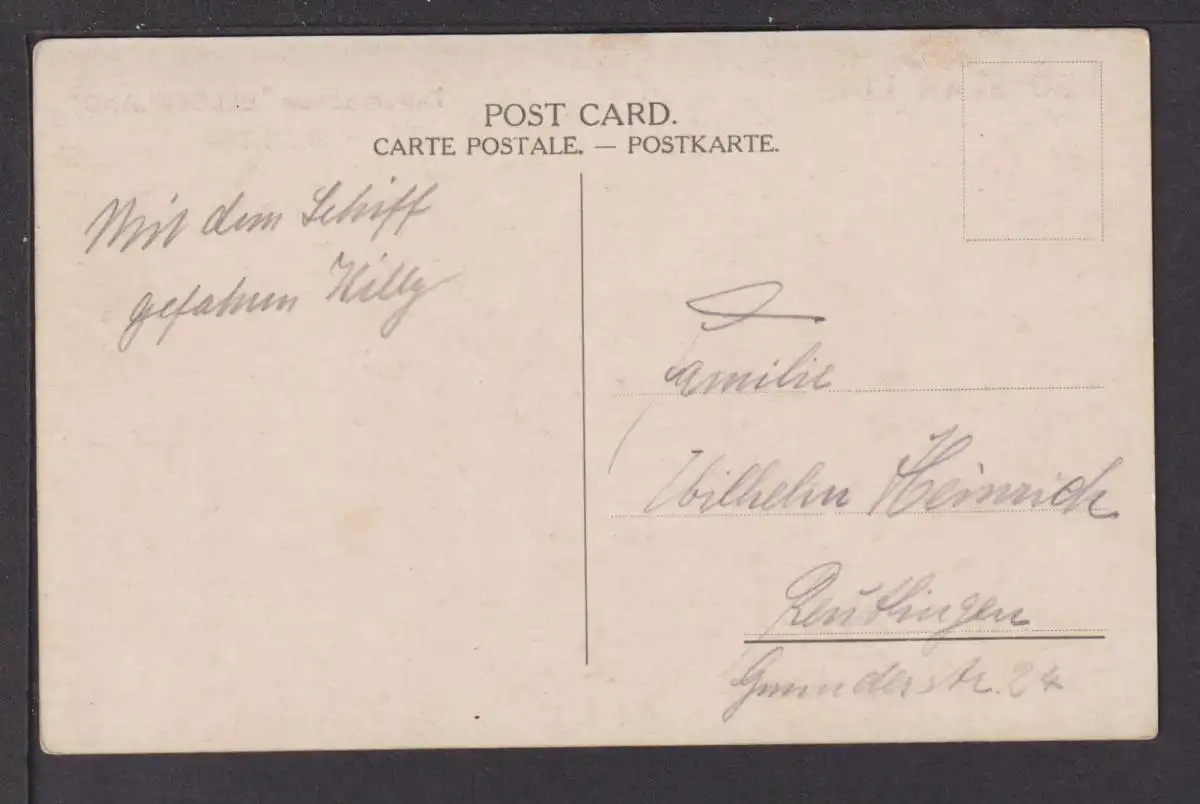 POST CARD.
CARTE POSTALE. — POSTKARTE.
Mit dem Schiff
gefahren Willy
Familie
Wilhelm Heinrich
Reutlingen
Gmünderstr. 24